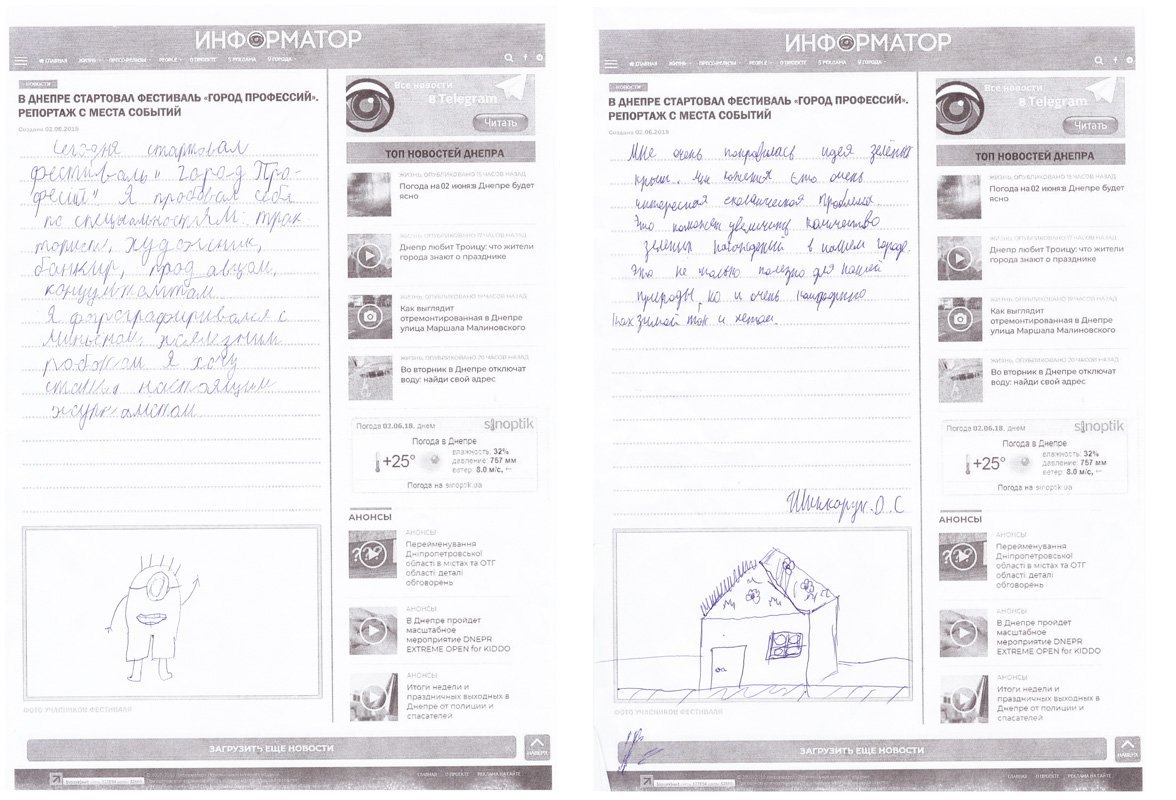 ИНФОРМАТОР
ГЛАВНАЯ ЖИЗНЬ ПРЕСС-РЕЛИЗЫ PEOPLE О ПРОЕКТЕ $ РЕКЛАМА О ГОРОДА
НОВОСТИ
В ДНЕПРЕ СТАРТОВАЛ ФЕСТИВАЛЬ «ГОРОД ПРОФЕССИЙ».
РЕПОРТАЖ С МЕСТА СОБЫТИЙ
Создано 02.06.2018
Сегодня стартовал
фестиваль " город Про-
фесій" Я пробовал себя
по специальностям: трак
тористе, художник,
банкир, продавцом,
Я фотографировался с
роботом Я хочу
стать настоящим
журналистом
ФОТО УЧАСНИКОВ ФЕСТИВАЛЯ
Все новости
в Telegram
Читать
ТОП НОВОСТЕЙ ДНЕПРА
ЖИЗНЬ, ОПУБЛИКОВАНО 15 ЧАСОВ НАЗАД
Погода на 02 июня:в Днепре будет
ясно
ЖИЗНЬ, ОПУБЛИКОВАНО ЧАСОВ НАЗАД
Днепр любит Троицу: что жители
города знают о празднике
ЖИЗНЬ, ОПУБЛИКОВАНО 19 ЧАСОВ НАЗАД
Как выглядит
отремонтированная в Днепре
улица Маршала Малиновского
ЖИЗНЬ, ОПУБЛИКОВАНО 20 ЧАСОВ НАЗАД
Во вторник в Днепре отключат
воду: найди свой адрес
Погода 02.06.18, днем sinoptik
Погода в Днепре
+25°
влажность: 32%
давление: 757 мм
ветер: 8.0 м/с, ←
Погода на sinoptik.ua
АНОНСЫ
АНОНСЫ
Перейменування
Дніпропетровської
області в містах та ОТГ
області: деталі
обговорень
АНОНСЫ
В Днепре пройдет
масштабное
мероприятие DNEPR
EXTREME OPEN for KIDDO
АНОНСЫ
Итоги недели и
праздничных выходных в
Днепре от полиции и
спасателей
ЗАГРУЗИТЬ ЕЩЕ НОВОСТИ
НАВЕРХ
ГЛАВНАЯ О ПРОЕКТЕ РЕКЛАМА НА САЙТЕ
ИНФОРМАТОР
ГЛАВНАЯ ЖИЗНЬ ПРЕСС-РЕЛИЗЫ PEOPLE О ПРОЕКТЕ $ РЕКЛАМА О ГОРОДА
НОВОСТИ
В ДНЕПРЕ СТАРТОВАЛ ФЕСТИВАЛЬ «ГОРОД ПРОФЕССИЙ».
РЕПОРТАЖ С МЕСТА СОБЫТИЙ
Создано 02.06.2018
Мне очень понравилась идея зелёных
крыш. Мне кажется это очень
интересная экологическая проблема.
Это поможет увеличить количество
зелёных насаждений в нашем городе.
Это не только полезно для нашей
природы, но и очень
как зимой так и летом.
Шинкарук. О. С
ФОТО УЧАСНИКОВ ФЕСТИВАЛЯ
Все новости
в Telegram
Читать
ТОП НОВОСТЕЙ ДНЕПРА
ЖИЗНЬ, ОПУБЛИКОВАНО 15 ЧАСОВ НАЗАД
Погода на 02 июня:в Днепре будет
ясно
ЖИЗНЬ, ОПУБЛИКОВАНО ЧАСОВ НАЗАД
Днепр любит Троицу: что жители
города знают о празднике
ЖИЗНЬ, ОПУБЛИКОВАНО 19 ЧАСОВ НАЗАД
Как выглядит
отремонтированная в Днепре
улица Маршала Малиновского
ЖИЗНЬ, ОПУБЛИКОВАНО 20 ЧАСОВ НАЗАД
Во вторник в Днепре отключат
воду: найди свой адрес
Погода 02.06.18, днем sinoptik
Погода в Днепре
+25°
влажность: 32%
давление: 757 мм
ветер: 8.0 м/с, ←
Погода на sinoptik.ua
АНОНСЫ
АНОНСЫ
Перейменування
Дніпропетровської
області в містах та ОТГ
області: деталі
обговорень
АНОНСЫ
В Днепре пройдет
масштабное
мероприятие DNEPR
EXTREME OPEN for KIDDO
АНОНСЫ
Итоги недели и
праздничных выходных в
Днепре от полиции и
спасателей
ЗАГРУЗИТЬ ЕЩЕ НОВОСТИ
НАВЕРХ
ГЛАВНАЯ О ПРОЕКТЕ РЕКЛАМА НА САЙТЕ